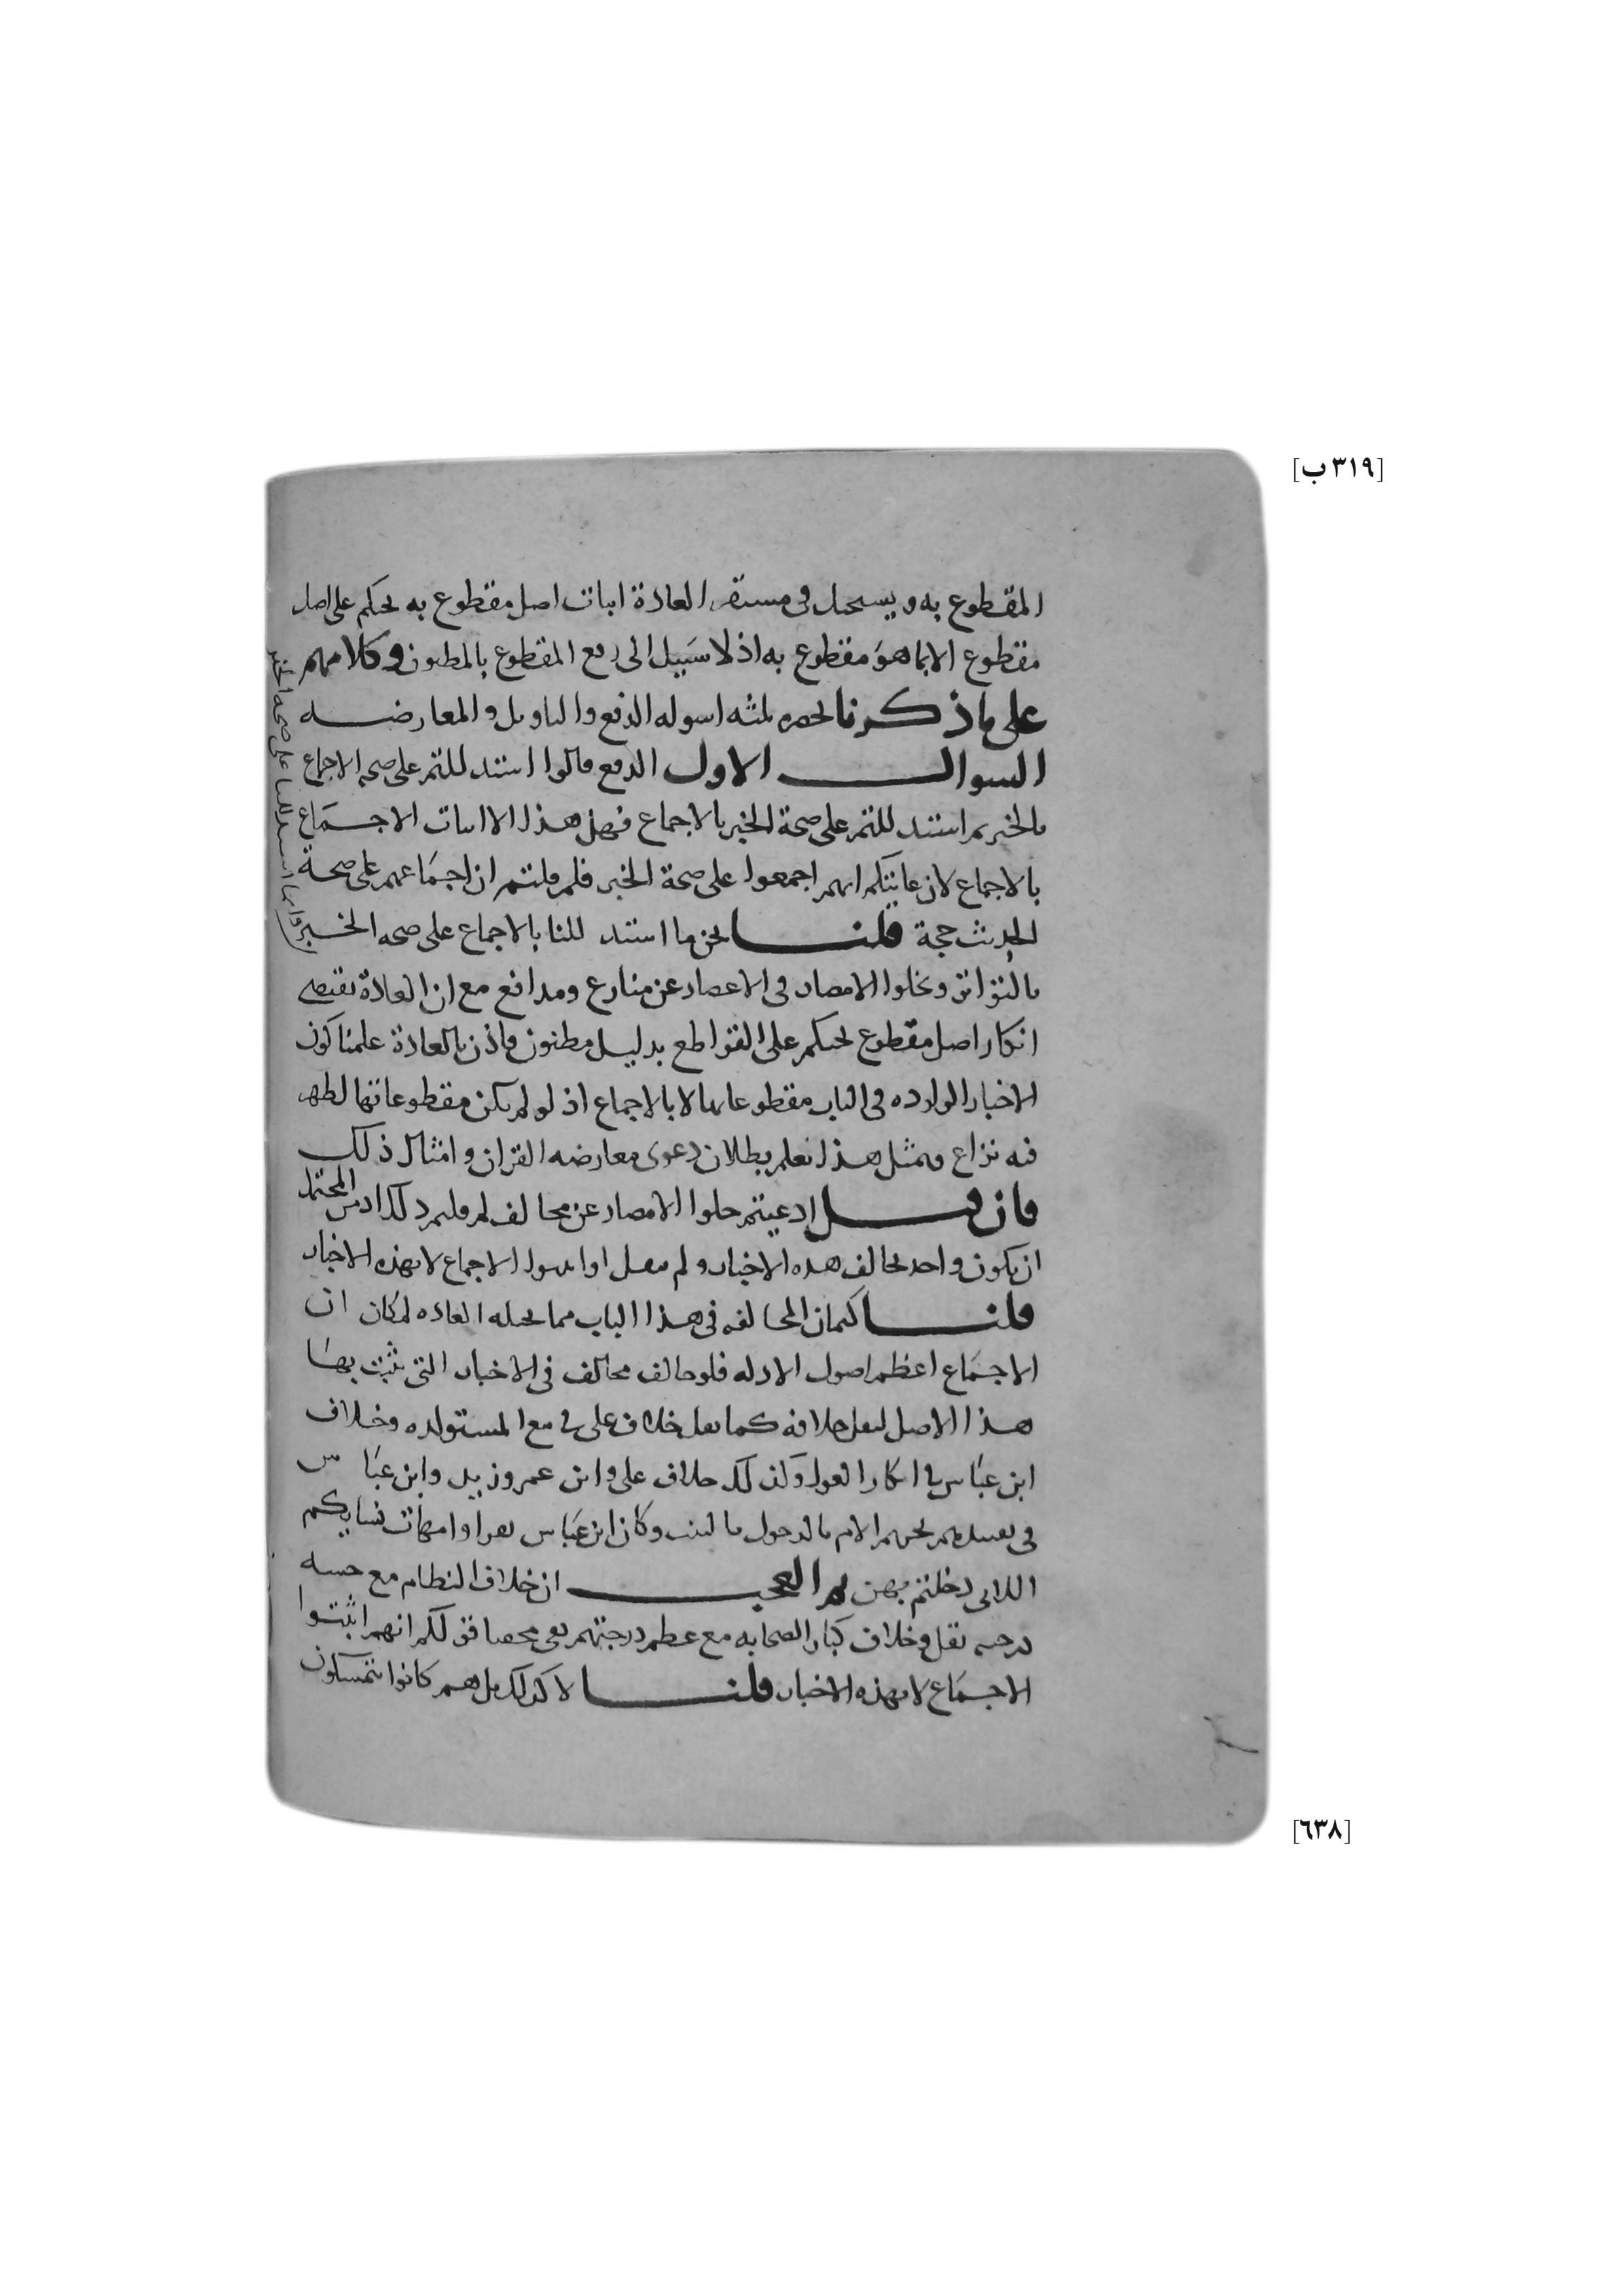 [٣١٩ ب]
المقطوع به ويستحيل في مستقر العادة اثبات اصل مقطوع به يحكم على اصل
مقطوع الا بما هو مقطوع به اذ لا سبيل الى رفع المقطوع بالمظنون وكلامهم
على ما ذكرنا يحصره ثلثه اسوله الدفع والتاويل والمعارضه
السوال الاول الدفع قالوا استدللتم على صحه الاجماع
بالخبر ثم استدللتم على صحة الخبر بالاجماع فهل هذا الا اثبات الاجماع
بالاجماع لان غايتكم انهم اجمعوا على صحة الخبر فلم قلتم ان اجماعهم على صحة
الحديث حجة قلنا نحن ما استدللنا بالاجماع على صحه الخبر
وانما استدللنا على صحه الخبر
بالتواتر وبخلوا الامصار في الاعصار عن منازع ومدافع مع ان العادة تقتضي
انكار اصل مقطوع يحكم على القواطع بدليل مظنون فاذن بالعادة علمنا كون
الاخبار الوارده في الباب مقطوعا بها لا بالاجماع اذ لو لم يكن مقطوعا بها لظهر
فيه نزاع وبمثل هذا نعلم بطلان دعوى معارضه القران وامثال ذلك
فان قيل ادعيتم خلوا الامصار عن مخالف لم قلتم ذلك اذ من المحتمل
ان يكون واحد خالف هذه الاخبار ولم ينقل او اثبتوا الاجماع لا بهذه الاخبار
قلنا كتمان المخالفه في هذا الباب مما تحيله العاده لمكان ان
الاجماع اعظم اصول الادله فلو خالف مخالف في الاخبار التي يثبت بها
هذا الاصل لنقل خلافه كما نقل خلاف علي في بيع المستولده وخلاف
ابن عباس في انكار العول وكذلك خلاف علي وابن عمر وزيد وابن عباس
في تقييدهم تحريم الام بالدخول بالبنت وكان ابن عباس يقرا وامهات نسايكم
اللاتي دخلتم بهن ثم العجب ان خلاف النظام مع خسه
درجته نقل وخلاف كبار الصحابه مع عظم درجتهم يعي قولكم انهم اثبتوا
الاجماع لا بهذه الاخبار قلنا لا كذلك بل هم كانوا يتمسكون
[٦٣٨]